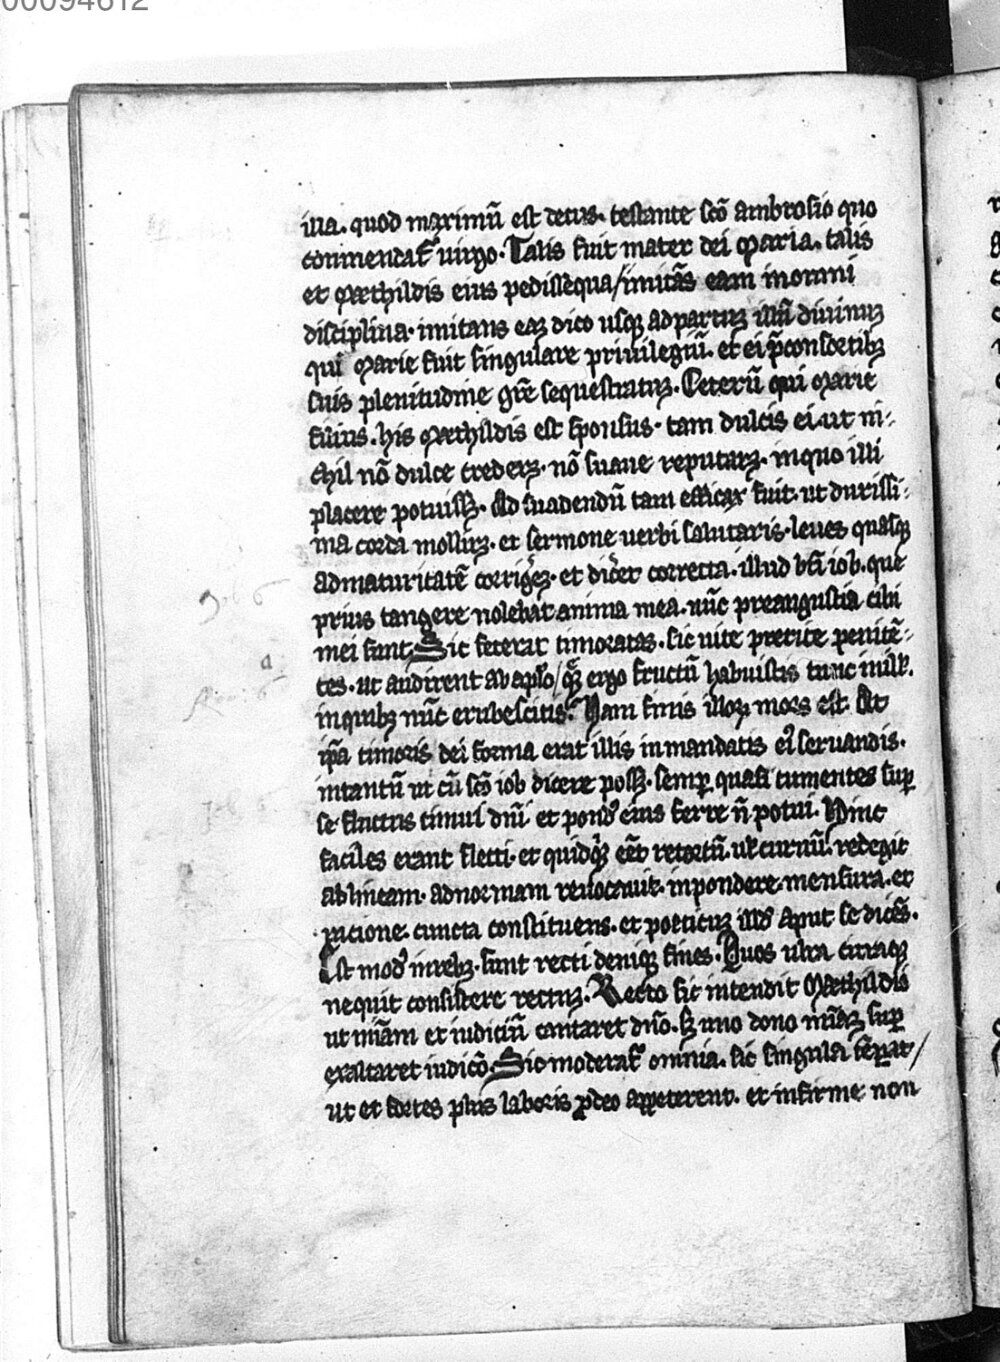 00094612
illa. quod maximū est decus. testante scō ambrosio quo
conmendat᷑ uirgo. Talis fuit mater dei Maria. talis
et Mæthildis eius pedissequa/imitās eam in omni
disciplina. imitans eaꝫ dico usqꝫ ad partuꝫ illū diuinuꝫ
qui Marie fuit singulare priuilegiū. et ei p̄ consortibꝫ
suis plenitudine gr̄e sequestratuꝫ. Ceterū qui Marie
filius. his Mæthildis est sponsus. tam dulcis ei. ut ni-
chil nō dulce crederꝫ. nō suaue reputarꝫ. in quo illi
placere potuissꝫ. Ad suadendū tam efficax fuit. ut durissi-
ma corda mollirꝫ. et sermone uerbi salutaris. leues quasqꝫ
ad maturitatē corrigeꝫ. et dicer correcta. illud bt̄i iob. que
prius tangere nolebat anima mea. nūc pre angustia cibi
mei sunt. Sic fecerat timoratas. sic uite preterite penitē-
tes. ut audirent ab aplo/ qͣꝫ ergo fructū habuistis tunc in ill'.
in quibꝫ nūc erubescitis? Nam finis illoꝝ mors est. At
ip̄a timoris dei forma erat illis in mandatis ei9 seruandis.
intantū ut cū scō iob dicere possꝫ. semꝑ quasi tumentes suꝑ
se fluctus timui dm̄ et pond9 eius ferre n̄ potui. Hinc
faciles erant flecti. et quidqͥd eēt retortū. ul' curuū. redegit
ad lineam. ad normam reuocauit. in pondere. mensura. et
racione cuncta constituens. et poeticuꝫ illd' aput se dicēs.
Est mod9 in rebꝫ. sunt recti deniqꝫ fines. Quos ultra citraqꝫ
nequit consistere rectuꝫ. Recto sic intendit Mæthildis
ut mīam et iudiciū cantaret dn̄o. sꝫ uno dono mīaꝫ suꝑ
exaltaret iudicō. Sic moderat᷑ omnia. sic singula tēperat/
ut et fortes plus laboris ꝓ deo appeterent. et infirme non
Job 6
a
Rom. 6
Job